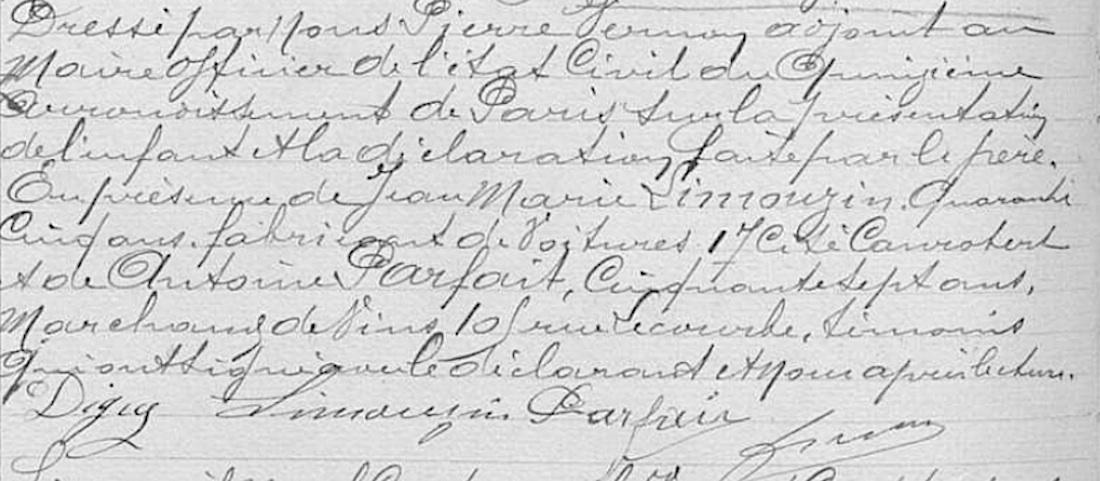 Dressé par Nous Pierre Vernoy adjoint au
Maire Officier de l'état Civil du Quinzième
Arrondissement de Paris sur la présentation
de l'enfant et la déclaration faite par le père.
En présence de Jean Marie Limouzin. Quarante
Cinq ans. fabricant de Voitures 17 Cité Canrobert
et de Antoine Parfait, Cinquante sept ans,
Marchand de Vins, 10 rue Lecourbe, témoins
Qui ont signé avec le déclarant et Nous après lecture.
Limouzin Parfait